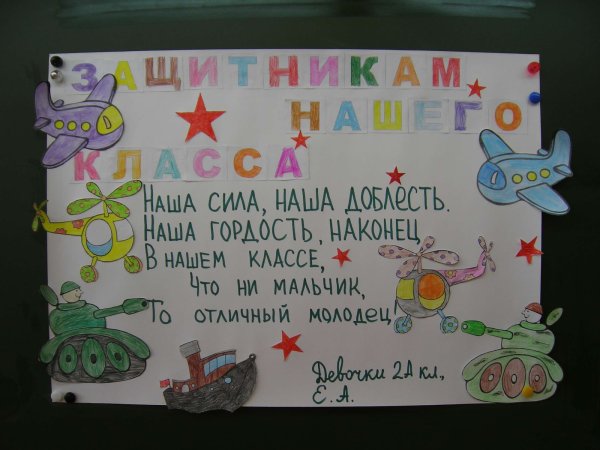 ЗАЩИТНИКАМ
НАШЕГО
КЛАССА
НАША СИЛА, НАША ДОБЛЕСТЬ.
НАША ГОРДОСТЬ, НАКОНЕЦ
В НАШЕМ КЛАССЕ,
ЧТО НИ МАЛЬЧИК,
ТО ОТЛИЧНЫЙ МОЛОДЕЦ!
Девочки 2А кл,
Е.А.